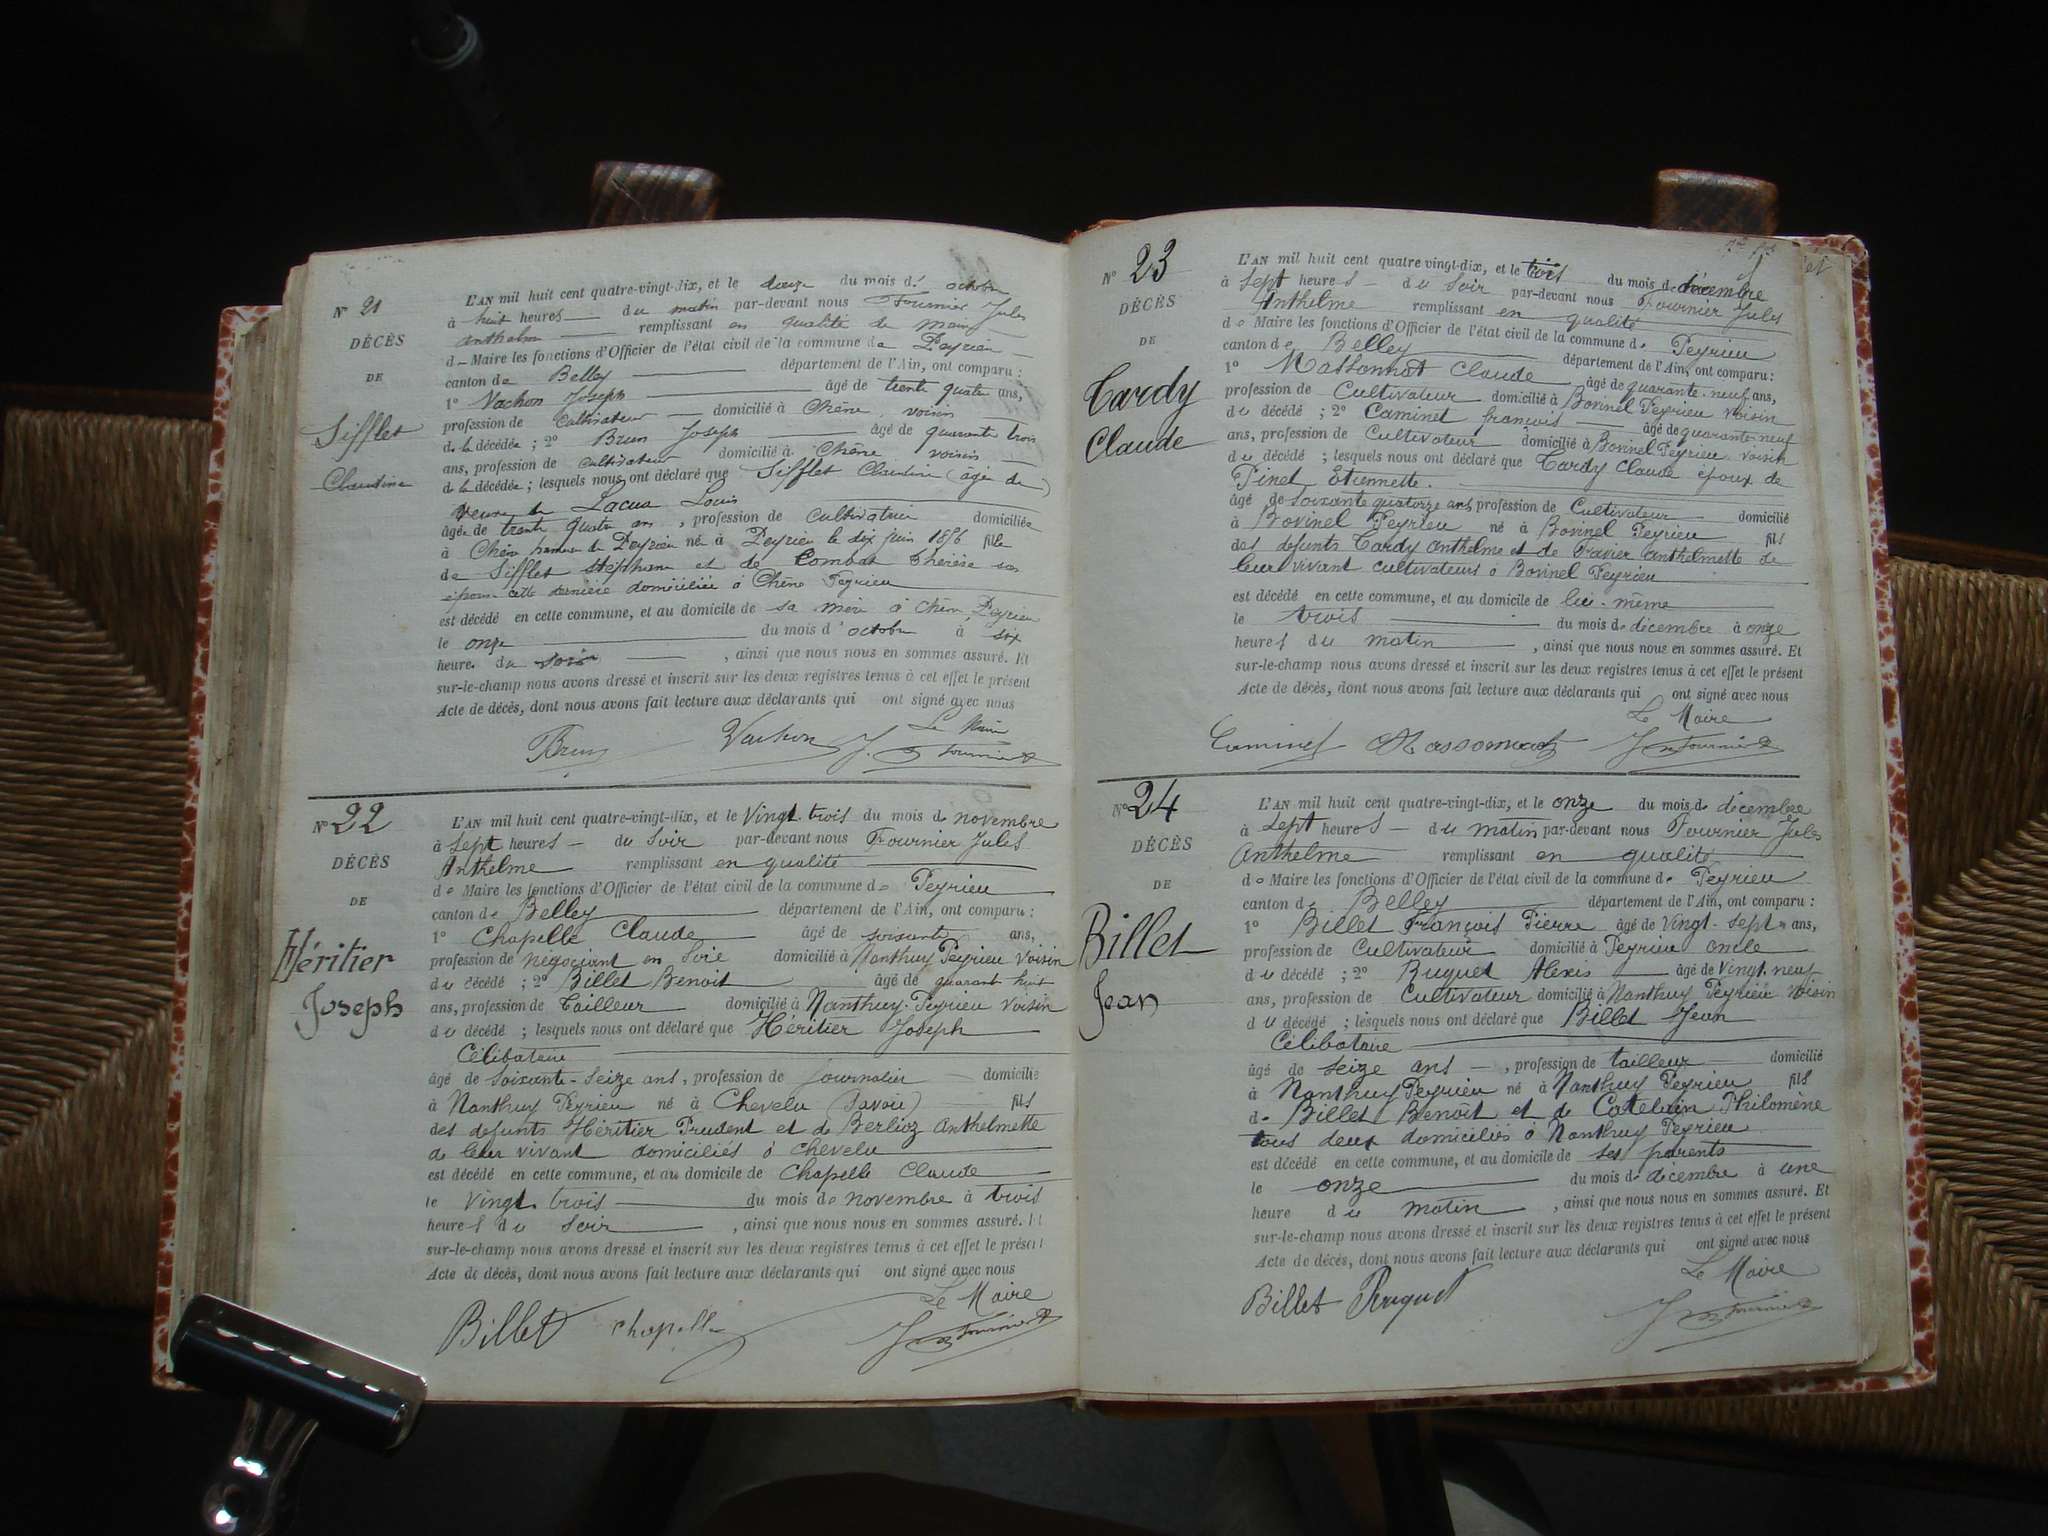 N° 21
DÉCÈS
DE
Sifflet
Claudine
L'AN mil huit cent quatre-vingt-dix, et le douze du mois d' octobre
à huit heures du matin par-devant nous Fournier Jules
Anthelme remplissant en qualité de maire
d Maire les fonctions d'Officier de l'état civil de la commune de Peyrieu
canton de Belley département de l'Ain, ont comparu :
1° Vachon Joseph âgé de trente quatre ans,
profession de Cultivateur domicilié à Chêne, voisin
de la décédée ; 2° Brun Joseph âgé de quarante trois
ans, profession de cultivateur domicilié à Chêne voisin
de la décédée ; lesquels nous ont déclaré que Sifflet Claudine (âgée de)
veuve de Lacua Louis
âgée de trente quatre ans, profession de cultivatrice domiciliée
à Chêne hameau de Peyrieu née à Peyrieu le dix juin 1856 fille
de Sifflet Stéphane et de Combat Thérèse son
épouse cette dernière domiciliée à Chêne Peyrieu
est décédé en cette commune, et au domicile de sa mère à Chêne Peyrieu
le onze du mois d' octobre à six
heure du soir, ainsi que nous nous en sommes assuré. Et
sur-le-champ nous avons dressé et inscrit sur les deux registres tenus à cet effet le présent
Acte de décès, dont nous avons fait lecture aux déclarants qui ont signé avec nous
Le Maire
Brun Vachon J. A Fournier
N° 22
DÉCÈS
DE
Héritier
Joseph
L'AN mil huit cent quatre-vingt-dix, et le Vingt trois du mois de novembre
à sept heures du soir par-devant nous Fournier Jules
Anthelme remplissant en qualité
de Maire les fonctions d'Officier de l'état civil de la commune de Peyrieu
canton de Belley département de l'Ain, ont comparu :
1° Chapelle Claude âgé de soixante ans,
profession de négociant en Soie domicilié à Nanthuy Peyrieu Voisin
du décédé ; 2° Billet Benoit âgé de quarant huit
ans, profession de Tailleur domicilié à Nanthuy Peyrieu Voisin
du décédé ; lesquels nous ont déclaré que Héritier Joseph
Célibataire
âgé de soixante-seize ans, profession de Journalier domicilié
à Nanthuy Peyrieu né à Chevelu (Savoie) fils
des defunts Héritier Prudent et de Berlioz Anthelmette
de leur vivant domiciliés à Chevelu
est décédé en cette commune, et au domicile de Chapelle Claude
le Vingt trois du mois de novembre à trois
heures du soir, ainsi que nous nous en sommes assuré. Et
sur-le-champ nous avons dressé et inscrit sur les deux registres tenus à cet effet le présent
Acte de décès, dont nous avons fait lecture aux déclarants qui ont signé avec nous
Le Maire
Billet Chapelle J A Fournier
N° 23
DÉCÈS
DE
Tardy
Claude
L'AN mil huit cent quatre-vingt-dix, et le trois du mois de décembre
à sept heures du soir par-devant nous Fournier Jules
Anthelme remplissant en qualité
de Maire les fonctions d'Officier de l'état civil de la commune de Peyrieu
canton de Belley département de l'Ain, ont comparu :
1° Massonnat Claude âgé de quarante-neuf ans,
profession de Cultivateur domicilié à Bovinel Peyrieu voisin
du décédé ; 2° Caminet françois âgé de quarante-neuf
ans, profession de Cultivateur domicilié à Bovinel Peyrieu voisin
du décédé ; lesquels nous ont déclaré que Tardy Claude époux de
Pinet Etiennette.
âgé de soixante quatorze ans profession de Cultivateur domicilié
à Bovinel Peyrieu né à Bovinel Peyrieu fils
des defunts Tardy Anthelme et de Travier Anthelmette de
leur vivant cultivateurs à Bovinel Peyrieu
est décédé en cette commune, et au domicile de lui-même
le trois du mois de décembre à onze
heures du matin, ainsi que nous nous en sommes assuré. Et
sur-le-champ nous avons dressé et inscrit sur les deux registres tenus à cet effet le présent
Acte de décès, dont nous avons fait lecture aux déclarants qui ont signé avec nous
Le Maire
Caminet Massonnat J A Fournier
N° 24
DÉCÈS
DE
Billet
Jean
L'AN mil huit cent quatre-vingt-dix, et le onze du mois de décembre
à sept heures du matin par-devant nous Fournier Jules
Anthelme remplissant en qualité
de Maire les fonctions d'Officier de l'état civil de la commune de Peyrieu
canton de Belley département de l'Ain, ont comparu :
1° Billet François Pierre âgé de Vingt-sept ans,
profession de Cultivateur domicilié à Peyrieu oncle
du décédé ; 2° Buguet Alexis âgé de Vingt-neuf
ans, profession de Cultivateur domicilié à Nanthuy Peyrieu Voisin
du décédé ; lesquels nous ont déclaré que Billet Jean
Célibataire
âgé de seize ans, profession de tailleur domicilié
à Nanthuy Peyrieu né à Nanthuy Peyrieu fils
de Billet Benoit et de Catelain Philomène
tous deux domiciliés à Nanthuy Peyrieu
est décédé en cette commune, et au domicile de ses parents
le onze du mois de décembre à une
heure du matin, ainsi que nous nous en sommes assuré. Et
sur-le-champ nous avons dressé et inscrit sur les deux registres tenus à cet effet le présent
Acte de décès, dont nous avons fait lecture aux déclarants qui ont signé avec nous
Le Maire
Billet Buguet J A Fournier